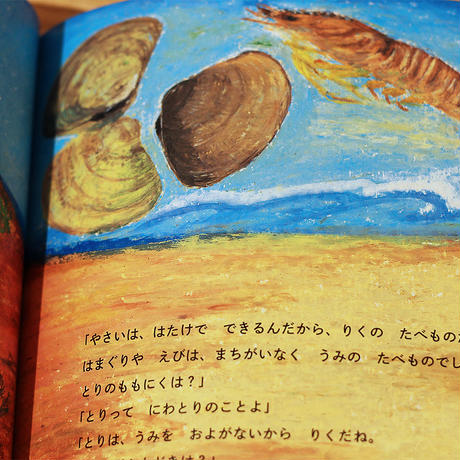 「やさいは、はたけで　できるんだから、りくの　たべもの
はまぐりや　えびは、まちがいなく　うみの　たべものでし
とりのももにくは？」
「とりって　にわとりのことよ」
「とりは、うみを　およがないから　りくだね。